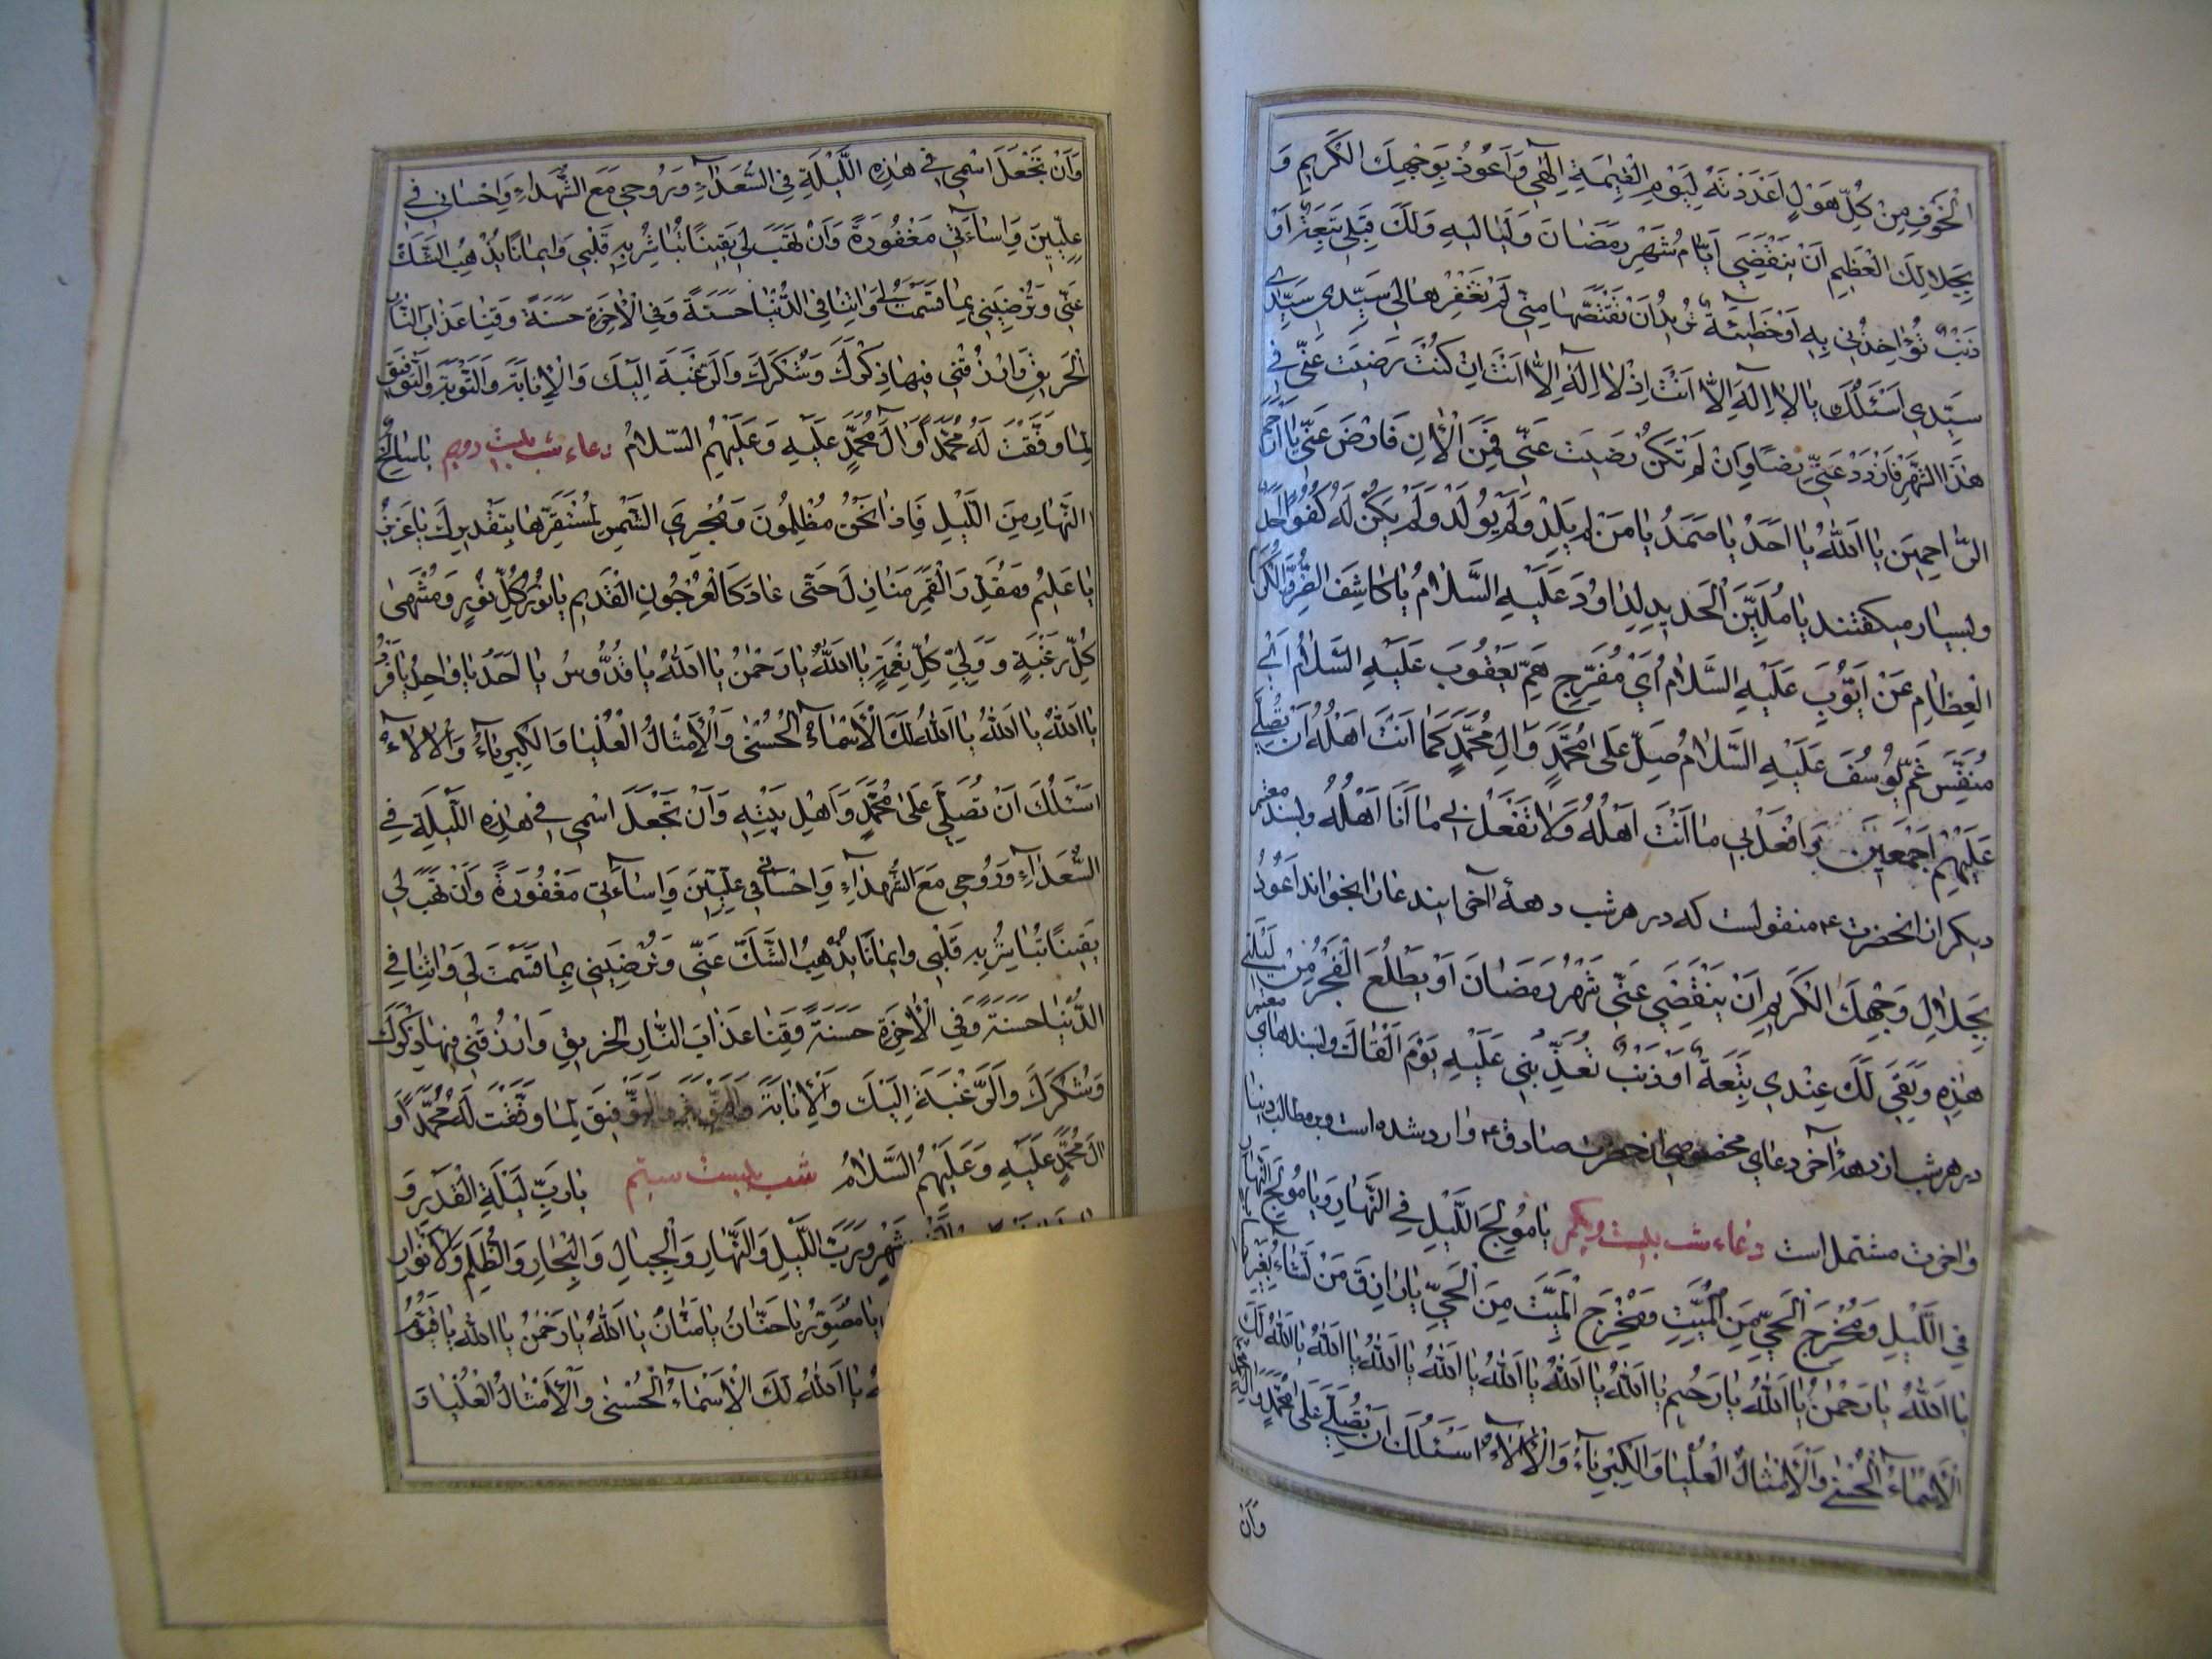 الْخَوْفِ مِنْ كُلِّ هَوْلٍ اَعْدَدْتَهُ لِيَوْمِ الْقِيٰمَةِ اِلٰهِي وَاَعُوذُ بِوَجْهِكَ الْكَرِيمِ وَ
بِجَلالِكَ الْعَظِيمِ اَنْ يَنْقَضِيَ اَيّامُ شَهْرِ رَمَضانَ وَلَيٰالِيهِ وَلَكَ قِبَلِي تَبِعَةٌ اَوْ
ذَنْبٌ تُؤٰاخِذُنِي بِهِ اَوْ خَطِيئَةٌ تُرِيدُ اَنْ تَقْتَصَّهٰا مِنِّي لَمْ تَغْفِرْهٰا لِي سَيِّدِي سَيِّدِي
سَيِّدِي اَسْئَلُكَ يٰا لٰا اِلٰهَ اِلّٰا اَنْتَ اِذْ لٰا اِلٰهَ اِلّٰا اَنْتَ اِنْ كُنْتَ رَضِيتَ عَنِّي فِي
هٰذَا الشَّهْرِ فَازْدَدْ عَنِّي رِضًا وَاِنْ لَمْ تَكُنْ رَضِيتَ عَنِّي فَمِنَ الْاٰنِ فَارْضَ عَنِّي يٰا اَرْحَمَ
الرّٰاحِمِينَ يٰا اَللّٰهُ يٰا اَحَدُ يٰا صَمَدُ يٰا مَنْ لَمْ يَلِدْ وَلَمْ يُولَدْ وَلَمْ يَكُنْ لَهُ كُفُوًا اَحَدٌ
وبسیار میکفتند يٰا مُلَيِّنَ الْحَدِيدِ لِدٰاوُدَ عَلَيْهِ السَّلٰامُ يٰا كٰاشِفَ الضُّرِّ وَالْكُرَبِ
الْعِظٰامِ عَنْ اَيُّوبَ عَلَيْهِ السَّلٰامُ اَيْ مُفَرِّجَ هَمِّ يَعْقُوبَ عَلَيْهِ السَّلٰامُ اَيْ
مُنَفِّسَ غَمِّ يُوسُفَ عَلَيْهِ السَّلٰامُ صَلِّ عَلٰى مُحَمَّدٍ وَاٰلِ مُحَمَّدٍ كَمٰا اَنْتَ اَهْلُهُ اَنْ تُصَلِّيَ
عَلَيْهِمْ اَجْمَعِينَ وَافْعَلْ بِي مٰا اَنْتَ اَهْلُهُ وَلٰا تَفْعَلْ بِي مٰا اَنَا اَهْلُهُ وبسند معتبر
دیکر از انحضرت ع منقولست که در هر شب دههٔ آخر ایندعا را بخواند اَعُوذُ
بِجَلٰالِ وَجْهِكَ الْكَرِيمِ اَنْ يَنْقَضِيَ عَنِّي شَهْرُ رَمَضٰانَ اَوْ يَطْلُعَ الْفَجْرُ مِنْ لَيْلَتِي
هٰذِهِ وَبَقِيَ لَكَ عِنْدِي تَبِعَةٌ اَوْ ذَنْبٌ تُعَذِّبُنِي عَلَيْهِ يَوْمَ اَلْقٰاكَ وبسندهای معتبر
در هر شب از دههٔ آخر دعای مخصوصی از حضرت صادق ع وارد شده است وبر مطالب دنیا
واخرت مشتمل است دعاء شب بیست ویکم يٰا مُولِجَ اللَّيْلِ فِي النَّهٰارِ وَيٰا مُولِجَ النَّهٰارِ
فِي اللَّيْلِ وَمُخْرِجَ الْحَيِّ مِنَ الْمَيِّتِ وَمُخْرِجَ الْمَيِّتِ مِنَ الْحَيِّ يٰا رٰازِقَ مَنْ تَشٰاءُ بِغَيْرِ حِسٰابٍ
يٰا اَللّٰهُ يٰا رَحْمٰنُ يٰا اَللّٰهُ يٰا رَحِيمُ يٰا اَللّٰهُ يٰا اَللّٰهُ يٰا اَللّٰهُ يٰا اَللّٰهُ يٰا اَللّٰهُ يٰا اَللّٰهُ لَكَ
الْاَسْمٰاءُ الْحُسْنٰى وَالْاَمْثٰالُ الْعُلْيٰا وَالْكِبْرِيٰاءُ وَالْاٰلٰاءُ اَسْئَلُكَ اَنْ تُصَلِّيَ عَلٰى مُحَمَّدٍ وَاٰلِ مُحَمَّدٍ
وَاَنْ
وَاَنْ تَجْعَلَ اسْمِي فِي هٰذِهِ اللَّيْلَةِ فِي السُّعَدٰاءِ وَرُوحِي مَعَ الشُّهَدٰاءِ وَاِحْسٰانِي فِي
عِلِّيِّينَ وَاِسٰاءَتِي مَغْفُورَةً وَاَنْ تَهَبَ لِي يَقِينًا تُبٰاشِرُ بِهِ قَلْبِي وَاِيمٰانًا يُذْهِبُ الشَّكَّ
عَنِّي وَتُرْضِيَنِي بِمٰا قَسَمْتَ لِي وَاٰتِنٰا فِي الدُّنْيٰا حَسَنَةً وَفِي الْاٰخِرَةِ حَسَنَةً وَقِنٰا عَذٰابَ النّٰارِ
الْحَرِيقِ وَارْزُقْنِي فِيهٰا ذِكْرَكَ وَشُكْرَكَ وَالرَّغْبَةَ اِلَيْكَ وَالْاِنٰابَةَ وَالتَّوْبَةَ وَالتَّوْفِيقَ
لِمٰا وَفَّقْتَ لَهُ مُحَمَّدًا وَاٰلَ مُحَمَّدٍ عَلَيْهِ وَعَلَيْهِمُ السَّلٰامُ دعاء شب بیست دویم يٰا سٰالِخَ
النَّهٰارِ مِنَ اللَّيْلِ فَاِذٰا نَحْنُ مُظْلِمُونَ وَمُجْرِيَ الشَّمْسِ لِمُسْتَقَرِّهٰا بِتَقْدِيرِكَ يٰا عَزِيزُ
يٰا عَلِيمُ وَمُقَدِّرَ الْقَمَرِ مَنٰازِلَ حَتّٰى عٰادَ كَالْعُرْجُونِ الْقَدِيمِ يٰا نُورَ كُلِّ نُورٍ وَمُنْتَهٰى
كُلِّ رَغْبَةٍ وَوَلِيَّ كُلِّ نِعْمَةٍ يٰا اَللّٰهُ يٰا رَحْمٰنُ يٰا اَللّٰهُ يٰا قُدُّوسُ يٰا اَحَدُ يٰا وٰاحِدُ يٰا فَرْدُ
يٰا اَللّٰهُ يٰا اَللّٰهُ يٰا اَللّٰهُ لَكَ الْاَسْمٰاءُ الْحُسْنٰى وَالْاَمْثٰالُ الْعُلْيٰا وَالْكِبْرِيٰاءُ وَالْاٰلٰاءُ
اَسْئَلُكَ اَنْ تُصَلِّيَ عَلٰى مُحَمَّدٍ وَاَهْلِ بَيْتِهِ وَاَنْ تَجْعَلَ اسْمِي فِي هٰذِهِ اللَّيْلَةِ فِي
السُّعَدٰاءِ وَرُوحِي مَعَ الشُّهَدٰاءِ وَاِحْسٰانِي فِي عِلِّيِّينَ وَاِسٰاءَتِي مَغْفُورَةً وَاَنْ تَهَبَ لِي
يَقِينًا تُبٰاشِرُ بِهِ قَلْبِي وَاِيمٰانًا يُذْهِبُ الشَّكَّ عَنِّي وَتُرْضِيَنِي بِمٰا قَسَمْتَ لِي وَاٰتِنٰا فِي
الدُّنْيٰا حَسَنَةً وَفِي الْاٰخِرَةِ حَسَنَةً وَقِنٰا عَذٰابَ النّٰارِ الْحَرِيقِ وَارْزُقْنِي فِيهٰا ذِكْرَكَ
وَشُكْرَكَ وَالرَّغْبَةَ اِلَيْكَ وَالْاِنٰابَةَ وَالتَّوْبَةَ وَالتَّوْفِيقَ لِمٰا وَفَّقْتَ لَهُ مُحَمَّدًا وَ
اٰلَ مُحَمَّدٍ عَلَيْهِ وَعَلَيْهِمُ السَّلٰامُ شب بیست سیم يٰا رَبَّ لَيْلَةِ الْقَدْرِ وَ
شَهْرٍ وَرَبَّ اللَّيْلِ وَالنَّهٰارِ وَالْجِبٰالِ وَالْبِحٰارِ وَالظُّلَمِ وَالْاَنْوٰارِ
يٰا مُصَوِّرُ يٰا حَنّٰانُ يٰا مَنّٰانُ يٰا اَللّٰهُ يٰا رَحْمٰنُ يٰا اَللّٰهُ يٰا قَيُّومُ
يٰا اَللّٰهُ لَكَ الْاَسْمٰاءُ الْحُسْنٰى وَالْاَمْثٰالُ الْعُلْيٰا وَ